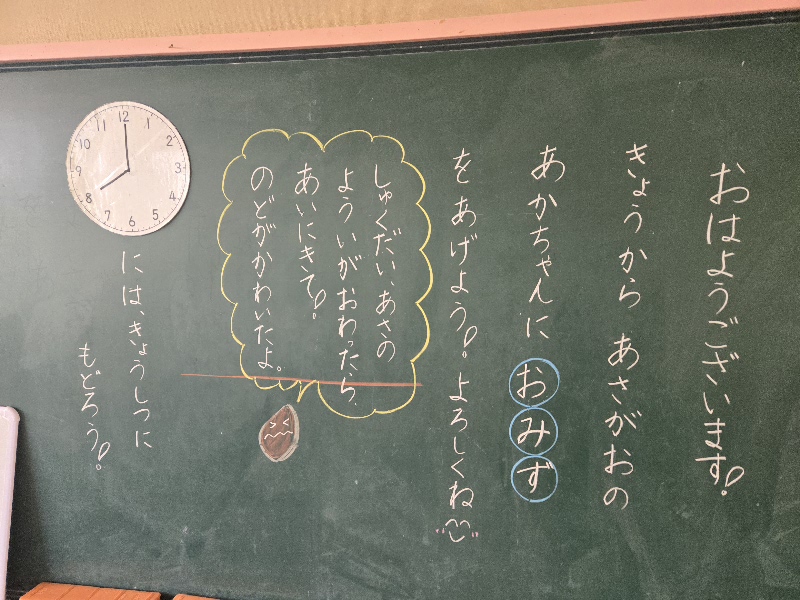 おはようございます!
きょうから あさがおの
あかちゃんに おみず
をあげよう!。よろしくね
しゅくだい、あさの
よういがおわったら、
あいにきて!
のどがかわいたよ。
12 1 2 3 4 5 6 7 8 9 10 11
には、きょうしつに
もどろう!